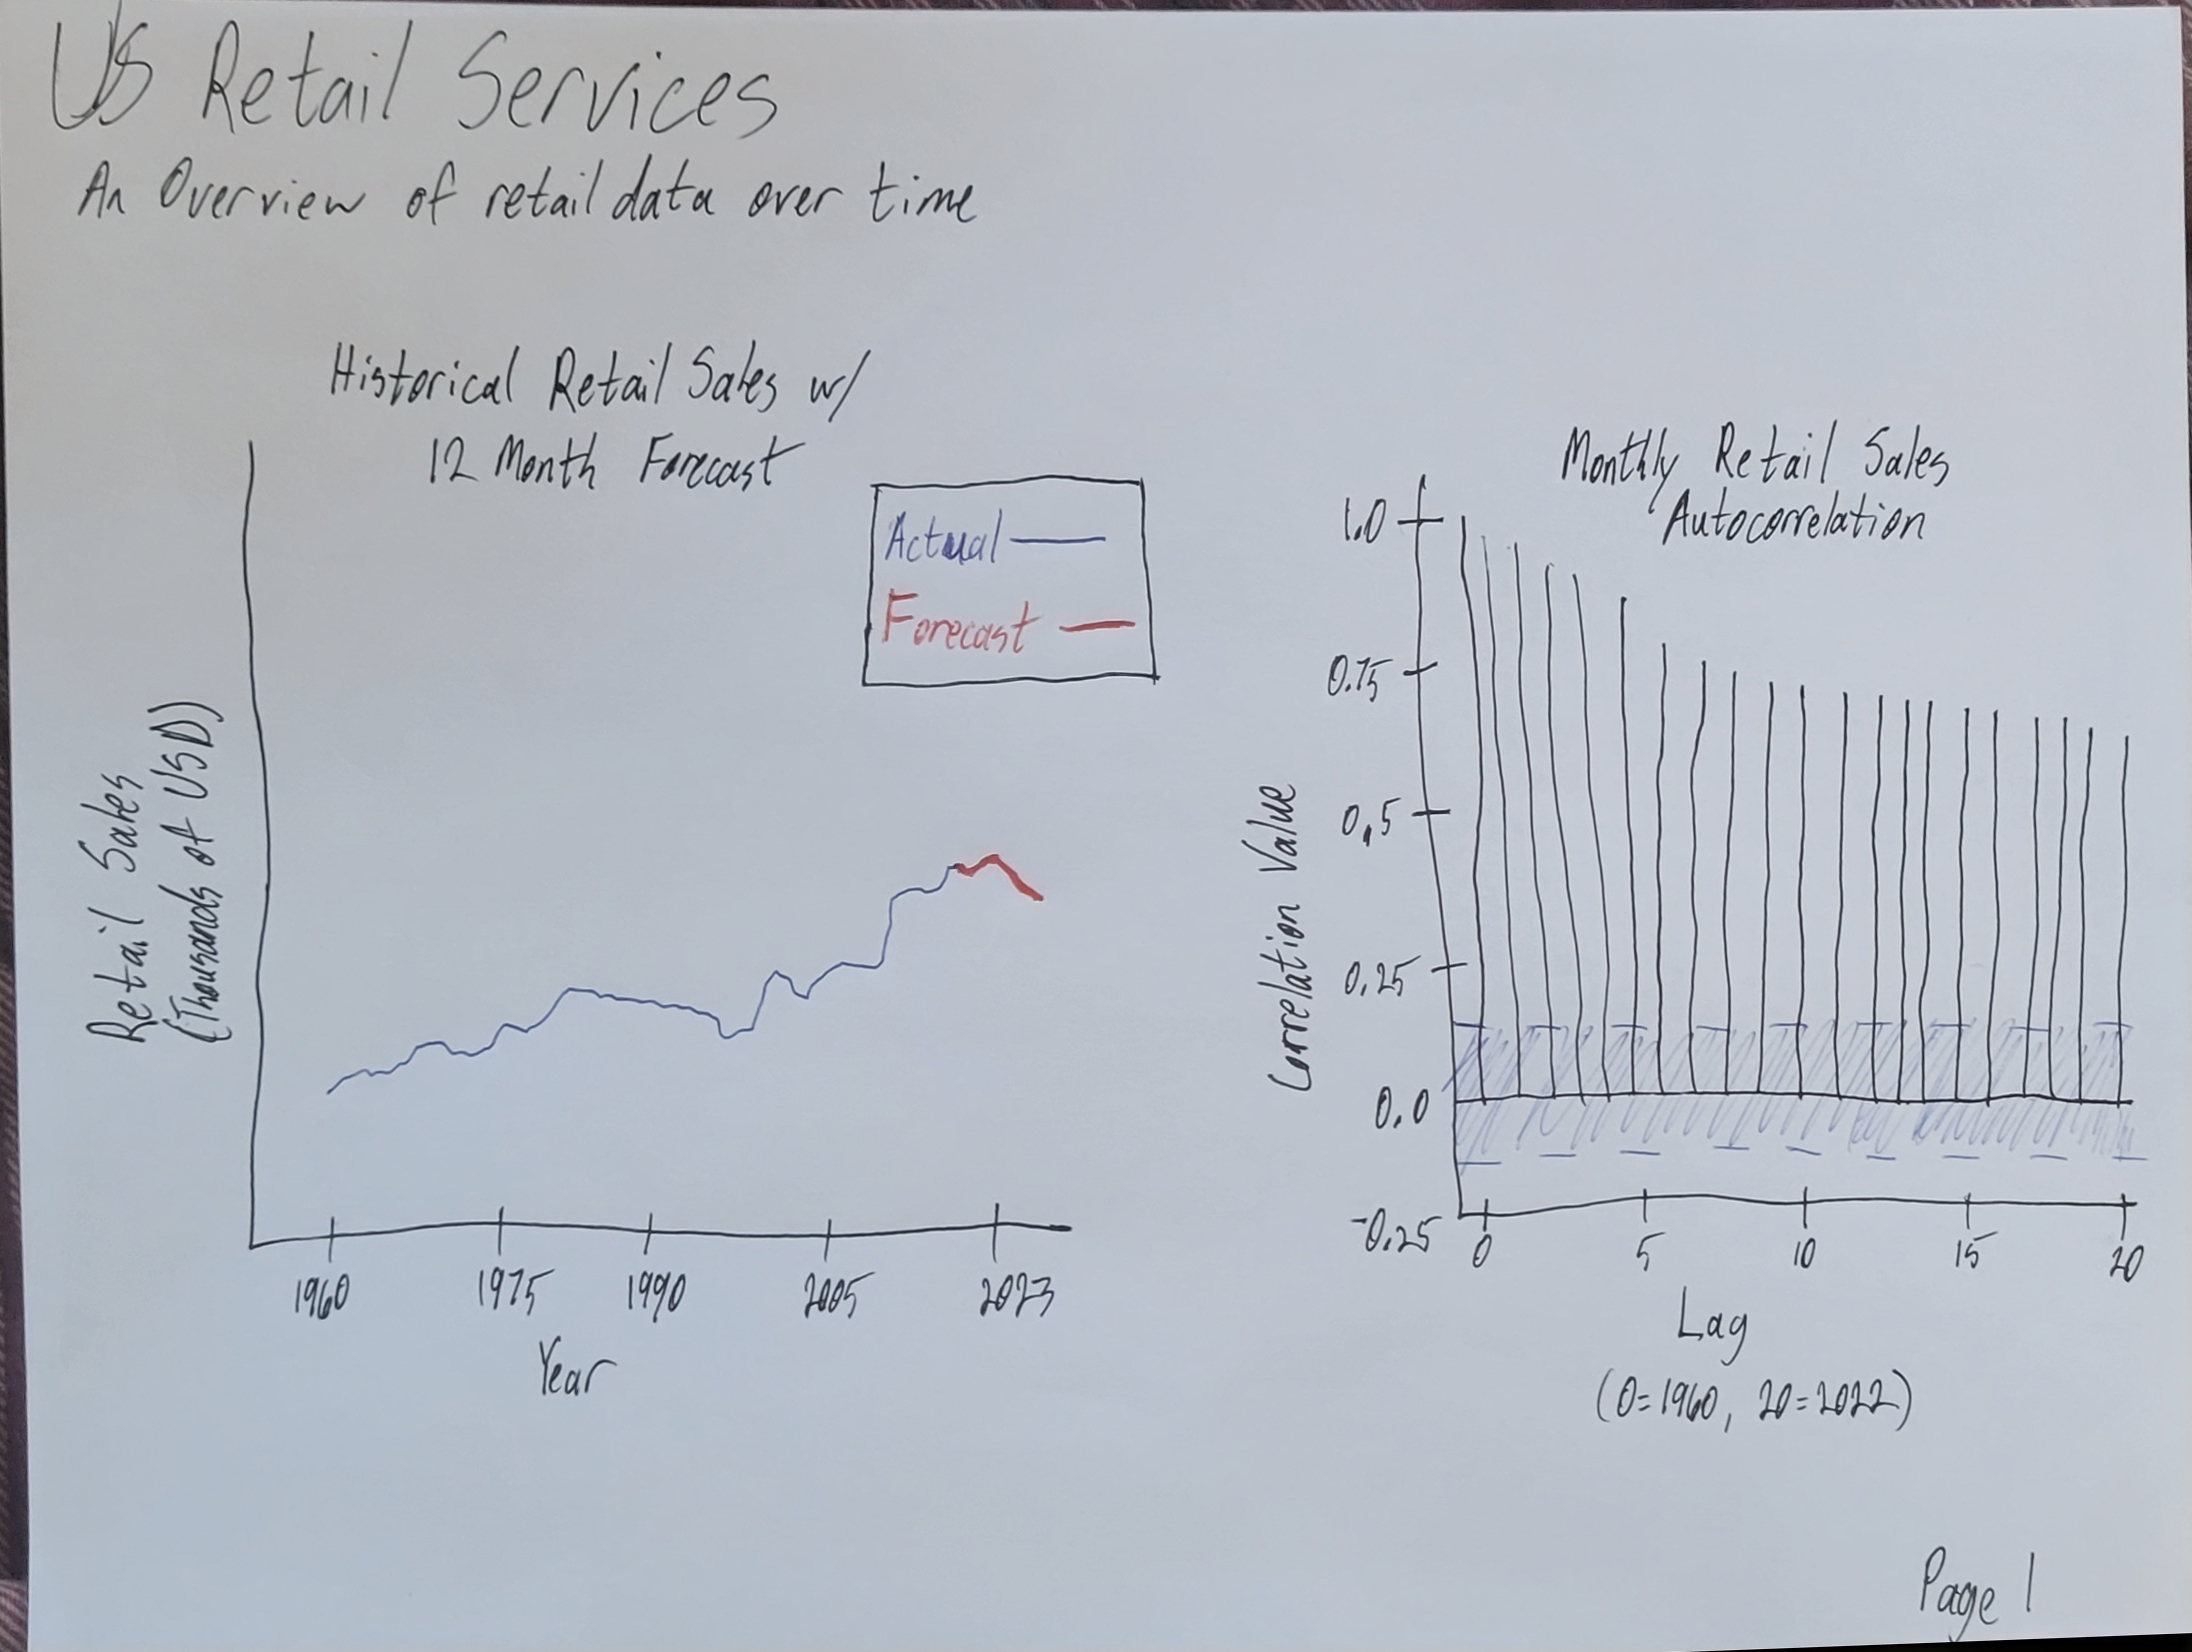 US Retail Services
An Overview of retail data over time
Historical Retail Sales w/
12 Month Forecast
Actual
Forecast
Retail Sales
(Thousands of USD)
1960 1975 1990 2005 2023
Year
Monthly Retail Sales
Autocorrelation
1.0
0.75
0.5
0.25
0.0
-0.25
Correlation Value
0 5 10 15 20
Lag
(0=1960, 20=2022)
Page 1